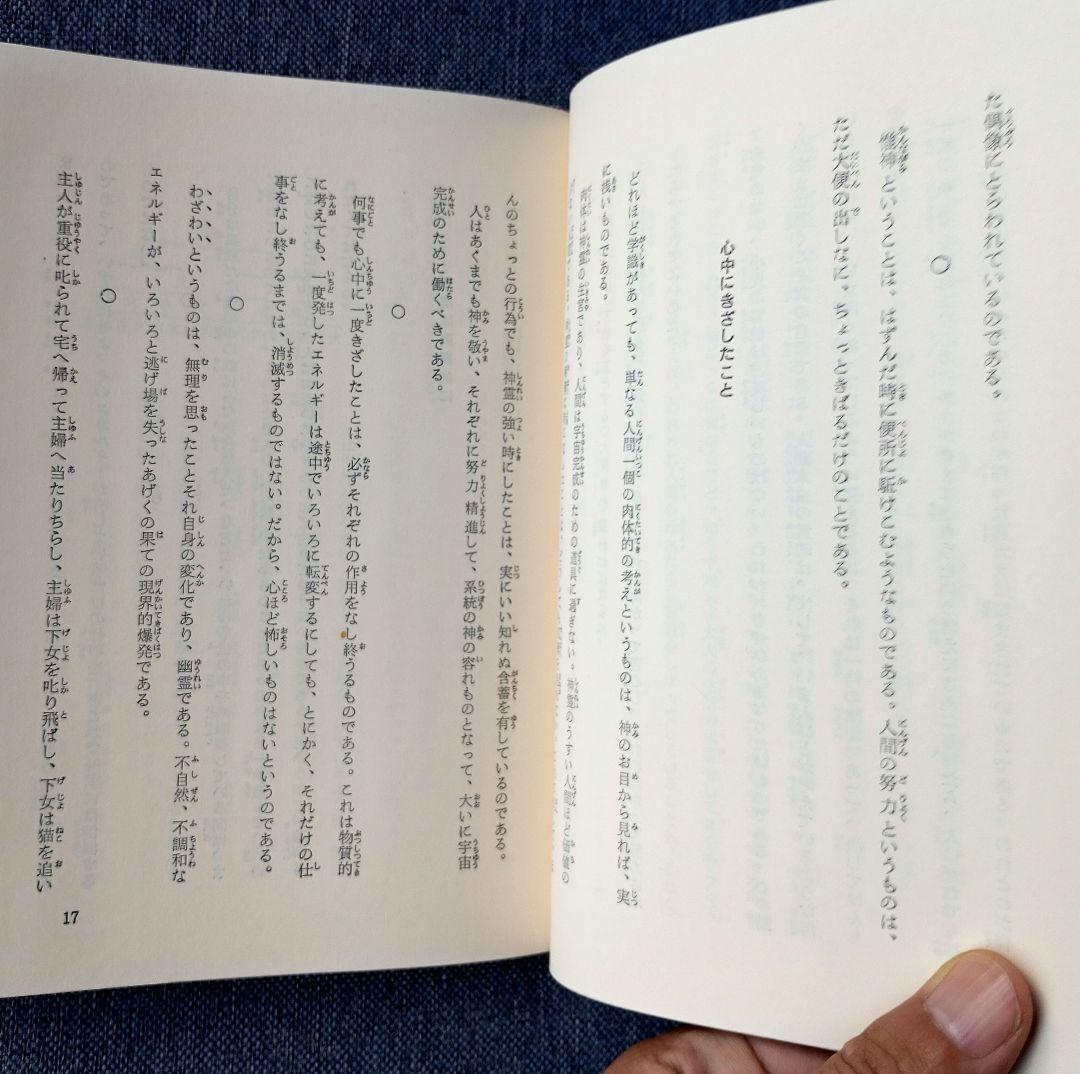 た偶像にとらわれているのである。
○
惟神ということは、はずんだ時に便所に駈けこむようなものである。人間の努力というものは、
ただ大便の出しなに、ちょっときばるだけのことである。
心中にきざしたこと
どれほど学識があっても、単なる人間一個の肉体的の考えというものは、神のお目から見れば、実
に浅いものである。
肉体は神霊の生宮であり、人間は宇宙完成のための道具に過ぎない。神霊のうすい人間ほど価値の
んのちょっとの行為でも、神霊の強い時にしたことは、実にいい知れぬ含蓄を有しているのである。
人はあくまでも神を敬い、それぞれに努力精進して、系統の神の容れものとなって、大いに宇宙
完成のために働くべきである。
○
何事でも心中に一度きざしたことは、必ずそれぞれの作用をなし終うるものである。これは物質的
に考えても、一度発したエネルギーは途中でいろいろに転変するにしても、とにかく、それだけの仕
事をなし終うるまでは、消滅するものではない。だから、心ほど怖しいものはないというのである。
○
わざわいというものは、無理を思ったことそれ自身の変化であり、幽霊である。不自然、不調和な
エネルギーが、いろいろと逃げ場を失ったあげくの果ての現界的爆発である。
○
主人が重役に叱られて宅へ帰って主婦へ当たりちらし、主婦は下女を叱り飛ばし、下女は猫を追い
17